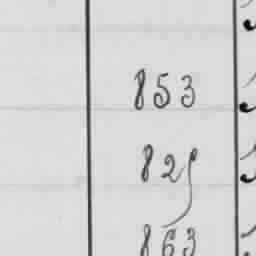 853
825
863